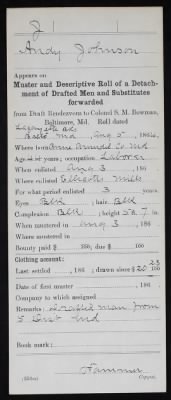 J
Andy Johnson
Appears on
Muster and Descriptive Roll of a Detachment of Drafted Men and Substitutes forwarded
from Draft Rendezvous to Colonel S. M. Bowman,
Baltimore, Md. Roll dated
Balto Md, Aug 5, 1864
Where born Anne Arundel Co Md
Age yrs; occupation Laborer
When enlisted Aug 3, 186
Where enlisted Ellicotts Mills
For what period enlisted 3 years.
Eyes Blk; hair Blk
Complexion Blk; height 5 ft. 7 in.
When mustered in Aug 3, 186
Where mustered in
Bounty paid $ 100; due $ 100
Clothing account:
Last settled , 186 ; drawn since $ 100
Date of first muster , 186
Company to which assigned
Remarks: Drafted man from
5 Dist Md
Book mark:
Copyist.